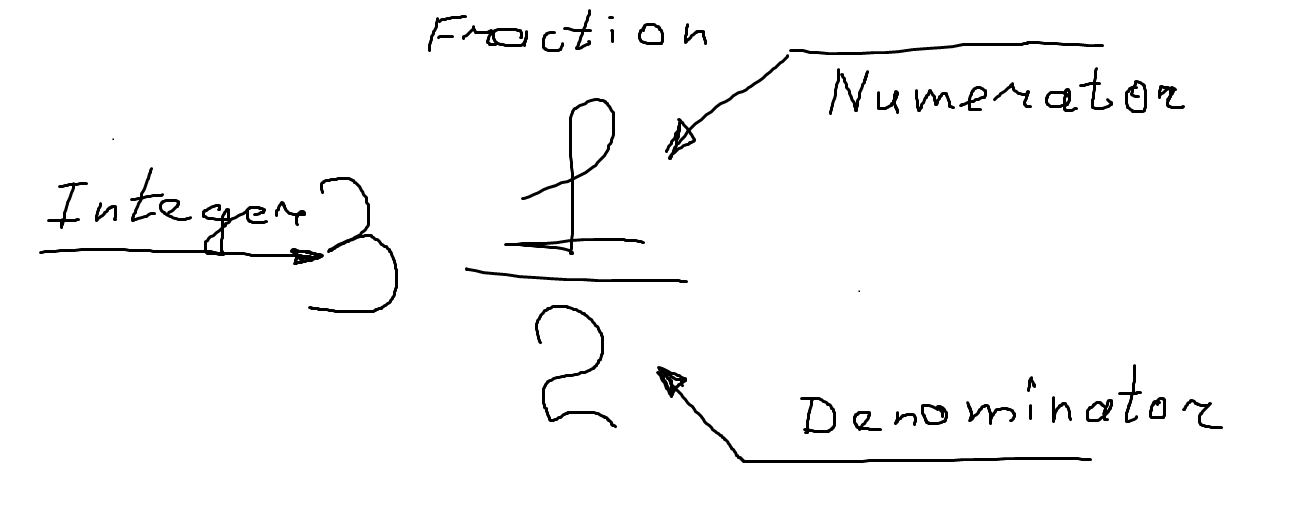 Fraction
Numerator
Integer 3 1
2
Denominator